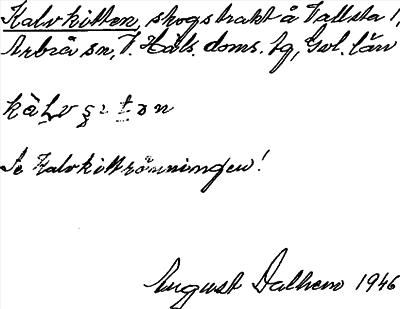 Kalvkitten, skogstrakt å Vallsta 1,
Arbrå sn, V. Häls. doms. tg, Gvl. län
Se Kalvkittrönningen!
August Dalhem 1946